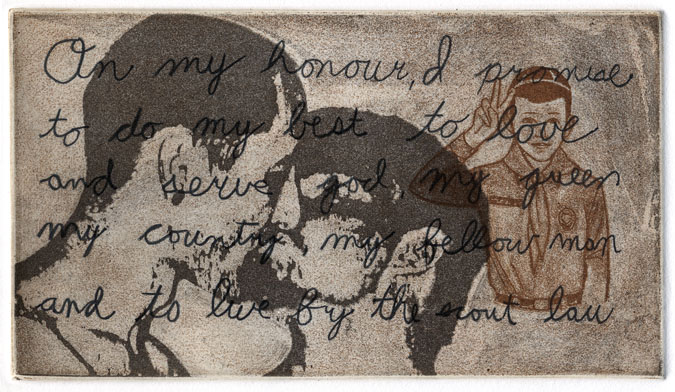 On my honour, I promise
to do my best to love
and serve god, my queen
my country, my fellow man
and to live by the scout law